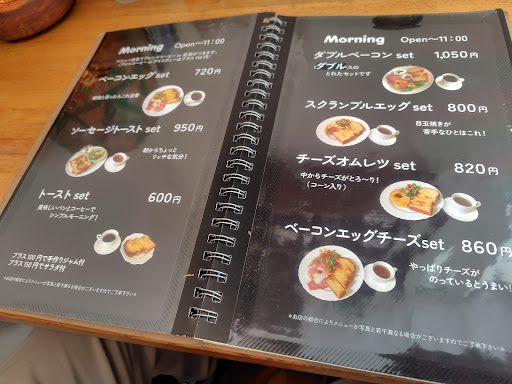 Morning Open~11:00
ベーコンエッグ set 720円
朝食と言ったらこれ定番
ソーセージトースト set 950円
朝からちょっと
リッチな気分!
トースト set 600円
美味しいパンとコーヒーで
シンプルモーニング!
プラス100円で手作りジャム付
プラス150円でサラダ付
*お店の都合によりメニューが写真と若干異なる場合がございますのでご了承下さい*
Morning Open~11:00
ダブルベーコン set 1,050円
ダブル
とれたセットです
スクランブルエッグ set 800円
目玉焼きが
苦手なひとはこれ!
チーズオムレツ set 820円
中からチーズがとろ~り!
(コーン入り)
ベーコンエッグチーズ set 860円
やっぱりチーズが
のっているとうまい!
*お店の都合によりメニューが写真と若干異なる場合がございますのでご了承下さい*